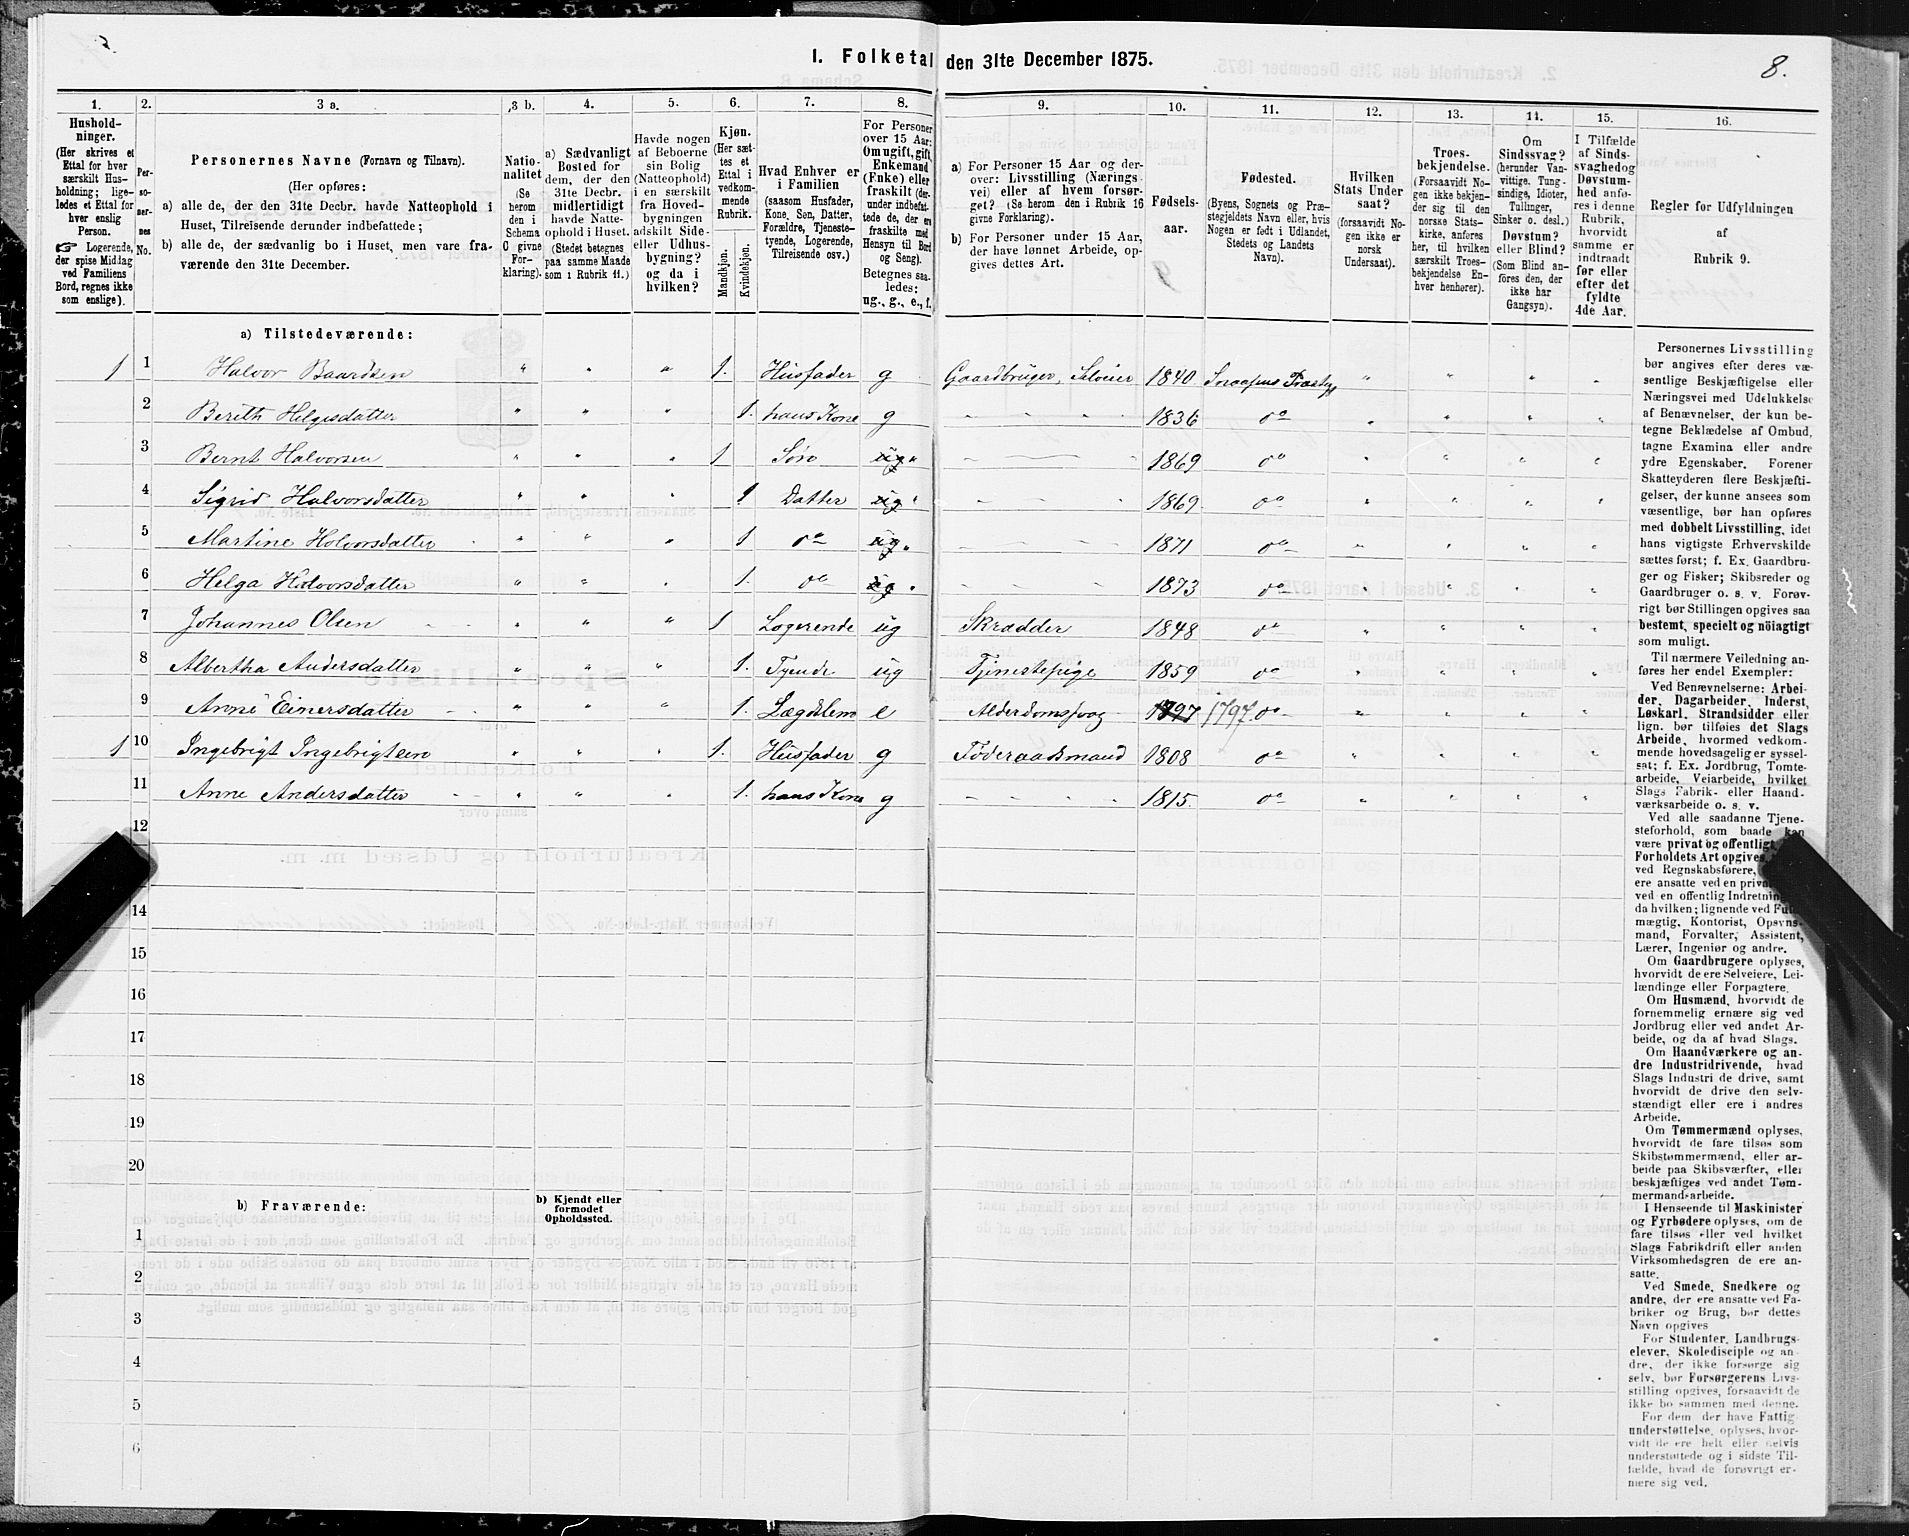 8.
I. Folketal den 31te December 1875.
1. 2. 3 a. 3 b. 4. 5. 6. 7. 8. 9. 10. 11. 12. 13. 14. 15. 16.
Hushold-
ninger.
(Her skrives et
Ettal for hver
særskilt Hus-
holdning; lige-
ledes et Ettal for
hver enslig
Person.
☞ Logerende,
der spise Middag
ved Familiens
Bord, regnes ikke
som enslige).
Per-
so-
ner-
nes
No.
Personernes Navne (Fornavn og Tilnavn).
(Her opføres:
a) alle de, der den 31te Decbr. havde Natteophold i
Huset, Tilreisende derunder indbefattede;
b) alle de, der sædvanlig bo i Huset, men vare fra-
værende den 31te December.
Natio-
nalitet
(Se
herom
den i
Schema
C givne
For-
klaring).
a) Sædvanligt
Bosted for
dem, der den
31te Decbr.
midlertidigt
havde Natte-
ophold i Huset.
(Stedet betegnes
paa samme Maade
som i Rubrik 11.)
Havde nogen
af Beboerne
sin Bolig
(Natteophold)
i en særskilt
fra Hoved-
bygningen
adskilt Side-
eller Udhus-
bygning?
og da i
hvilken?
Kjøn.
(Her sæt-
tes et
Ettal i
vedkom-
mende
Rubrik.
Mandkjøn.
Kvindekjøn.
Hvad Enhver er
i Familien
(saasom Husfader,
Kone, Søn, Datter,
Forældre, Tjeneste-
tyende, Logerende,
Tilreisende osv.)
For Personer
over 15 Aar:
Om ugift, gift,
Enkemand
(Enke) eller
fraskilt (der-
under indbefat-
tede de, der ere
fraskilte med
Hensyn til Bord
og Seng).
Betegnes saa-
ledes:
ug., g., e., f.
a) For Personer 15 Aar og der-
over: Livsstilling (Nærings-
vei) eller af hvem forsør-
get? (Se herom den i Rubrik 16
givne Forklaring).
b) For Personer under 15 Aar,
der have lønnet Arbeide, op-
gives dettes Art.
Fødsels-
aar.
Fødested.
(Byens, Sognets og Præ-
stegjeldets Navn eller, hvis
Nogen er født i Udlandet,
Stedets og Landets
Navn).
Hvilken
Stats Under-
saat?
(forsaavidt No-
gen ikke er
norsk
Undersaat).
Troes-
bekjendelse.
(Forsaavidt No-
gen ikke bekjen-
der sig til den
norske Stats-
kirke, anføres
her, til hvilken
særskilt Troes-
bekjendelse En-
hver henhører).
Om
Sindssvag?
(herunder Van-
vittige, Tung-
sindige, Idioter,
Tullinger,
Sinker o. desl.)
Døvstum?
eller Blind?
(Som Blind an-
føres den, der
ikke har
Gangsyn).
I Tilfælde
af Sinds-
svaghed og
Døvstum-
hed anfø-
res i denne
Rubrik,
hvorvidt
samme er
indtraadt
før eller
efter det
fyldte
4de Aar.
Regler for Udfyldningen
af
Rubrik 9.
a) Tilstedeværende:
1 1 Halvor Baardsen " " " 1. Husfader g Gaardbruger, Selveier 1840 Snaasens Præstgj " " " "
2 Berith Helgesdatter " " " 1. hans Kone g - - - - 1836 do " " " "
3 Bernt Halvorsen " " " 1 Søn ug " - - - 1869 do " " " "
4 Sigrid Halvorsdatter " " " 1 Datter ug " - - - - 1869 do " " " "
5 Martine Halvorsdatter " " " 1 do ug " - - - - 1871 do " " " "
6 Helga Halvorsdatter " " " 1. do ug " - - - - 1873 do " " " "
7 Johannes Olsen " " " 1 Logerende ug Skrædder 1848 do " " " "
8 Albertha Andersdatter " " " 1. Tyende ug Tjenestepige 1859 do " " " "
9 Anne Einersdatter " " " 1. Lægdslem e Alderdomssvag 1797 1797 do " " " "
1 10 Ingebrigt Ingebrigtsen " " " 1. Husfader g Føderaadsmand 1808 do " " " "
11 Anne Andersdatter " " " 1. hans Kone g - - - - 1815. do " " " "
12
14
15
16
17
18
19
20
b) Fraværende:
b) Kjendt eller
formodet
Opholdssted.
1
2
3
4
5
6
Personernes Livsstilling
bør angives efter deres væ-
sentlige Beskjæftigelse eller
Næringsvei med Udelukkelse
af Benævnelser, der kun be-
tegne Beklædelse af Ombud,
tagne Examina eller andre
ydre Egenskaber. Forener
Skatteyderen flere Beskjæfti-
gelser, der kunne ansees som
væsentlige, bør han opføres
med dobbelt Livsstilling, idet
hans vigtigste Erhvervskilde
sættes først; f. Ex. Gaardbru-
ger og Fisker; Skibsreder og
Gaardbruger o. s. v. Forøv-
rigt bør Stillingen opgives saa
bestemt, specielt og nöiagtigt
som muligt.
Til nærmere Veiledning an-
føres her endel Exempler:
Ved Benævnelserne: Arbei-
der, Dagarbeider, Inderst,
Løskarl, Strandsidder eller
lign. bør tilføies det Slags
Arbeide, hvormed vedkom-
mende hovedsagelig er syssel-
sat; f. Ex. Jordbrug, Tomte-
arbeide, Veiarbeide, hvilket
Slags Fabrik- eller Haand-
værksarbeide o. s. v.
Ved alle saadanne Tjene-
steforhold, som baade kan
være privat og offentligt,
Forholdets Art opgives,
ved Regnskabsførere,
ere ansatte ved en privat
ved en offentlig Indretning
da hvilken; lignende ved Fuld-
mægtig, Kontorist, Opsyns-
mand, Forvalter, Assistent,
Lærer, Ingeniør og andre.
Om Gaardbrugere oplyses,
hvorvidt de ere Selveiere, Lei-
lændinge eller Forpagtere.
Om Husmænd, hvorvidt de
fornemmelig ernære sig ved
Jordbrug eller ved andet Ar-
beide, og da af hvad Slags.
Om Haandværkere og an-
dre Industridrivende, hvad
Slags Industri de drive, samt
hvorvidt de drive den selv-
stændigt eller ere i andres
Arbeide.
Om Tømmermænd oplyses,
hvorvidt de fare tilsøs som
Skibstømmermænd, eller ar-
beide paa Skibsværfter, eller
beskjæftiges ved andet Tøm-
mermandsarbeide.
I Henseende til Maskinister
og Fyrbødere oplyses, om de
fare tilsøs eller ved hvilket
Slags Fabrikdrift eller anden
Virksomhedsgren de ere an-
satte.
Ved Smede, Snedkere og
andre, der ere ansatte ved Fa-
briker og Brug, bør dettes
Navn opgives
For Studenter, Landbrugs-
elever, Skoledisciple og an-
dre, der ikke forsørge sig
selv, bør Forsørgerens Livs-
stilling opgives, forsaavidt de
ikke bo sammen med denne.
For dem der have Fattig-
understøttelse, oplyses, hvor-
vidt de ere helt eller delvis
understøttede og i sidste Til-
fælde, hvad de forøvrigt er-
nære sig ved.